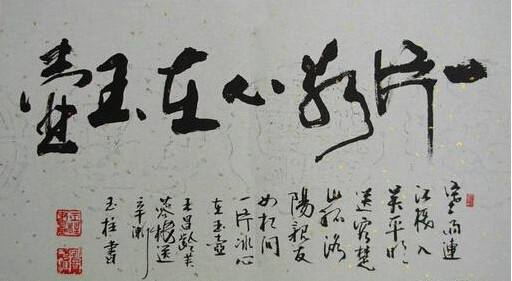 一片冰心在玉壺
寒雨連
江夜入
吴平明
送客楚
山孤洛
陽親友
如相问
一片冰心
在玉壶
王昌龄芙
蓉楼送
辛渐
玉柱書